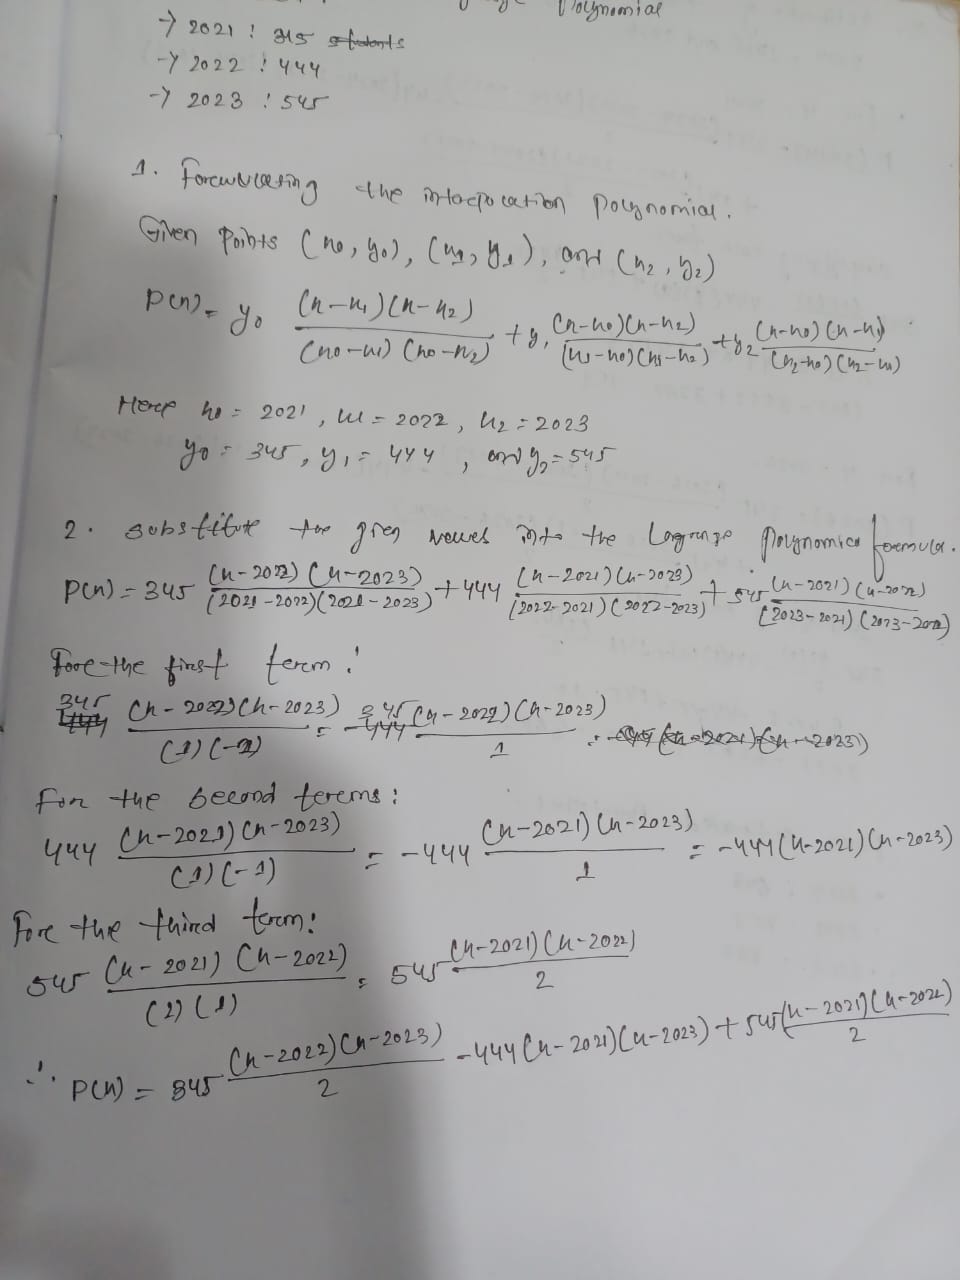 Polynomial
→ 2021 : 345 students
→ 2022 : 444
→ 2023 : 545
1. Forewulating the interpolation Polynomial.
Given Points (n0, y0), (n1, y1), and (n2, y2)
P(n) = y0 (n-n1)(n-n2) / (n0-n1)(n0-n2) + y1 (n-n0)(n-n2) / (n1-n0)(n1-n2) + y2 (n-n0)(n-n1) / (n2-n0)(n2-n1)
Here n0 = 2021, n1 = 2022, n2 = 2023
y0 = 345, y1 = 444, and y2 = 545
2. Substitute the given values into the Lagrange Polynomial foremula.
P(n) = 345 (n-2022)(n-2023) / (2021-2022)(2021-2023) + 444 (n-2021)(n-2023) / (2022-2021)(2022-2023) + 545 (n-2021)(n-2022) / (2023-2021)(2023-2022)
Fore the first term:
345 (n-2022)(n-2023) / (1)(-2) = 345 (n-2022)(n-2023) / 1
For the Second terems:
444 (n-2021)(n-2023) / (1)(-1) = -444 (n-2021)(n-2023) / 1 = -444(n-2021)(n-2023)
Fore the third term:
545 (n-2021)(n-2022) / (2)(1) = 545 (n-2021)(n-2022) / 2
∴ P(n) = 345 (n-2022)(n-2023) / 2 - 444(n-2021)(n-2023) + 545 (n-2021)(n-2022) / 2